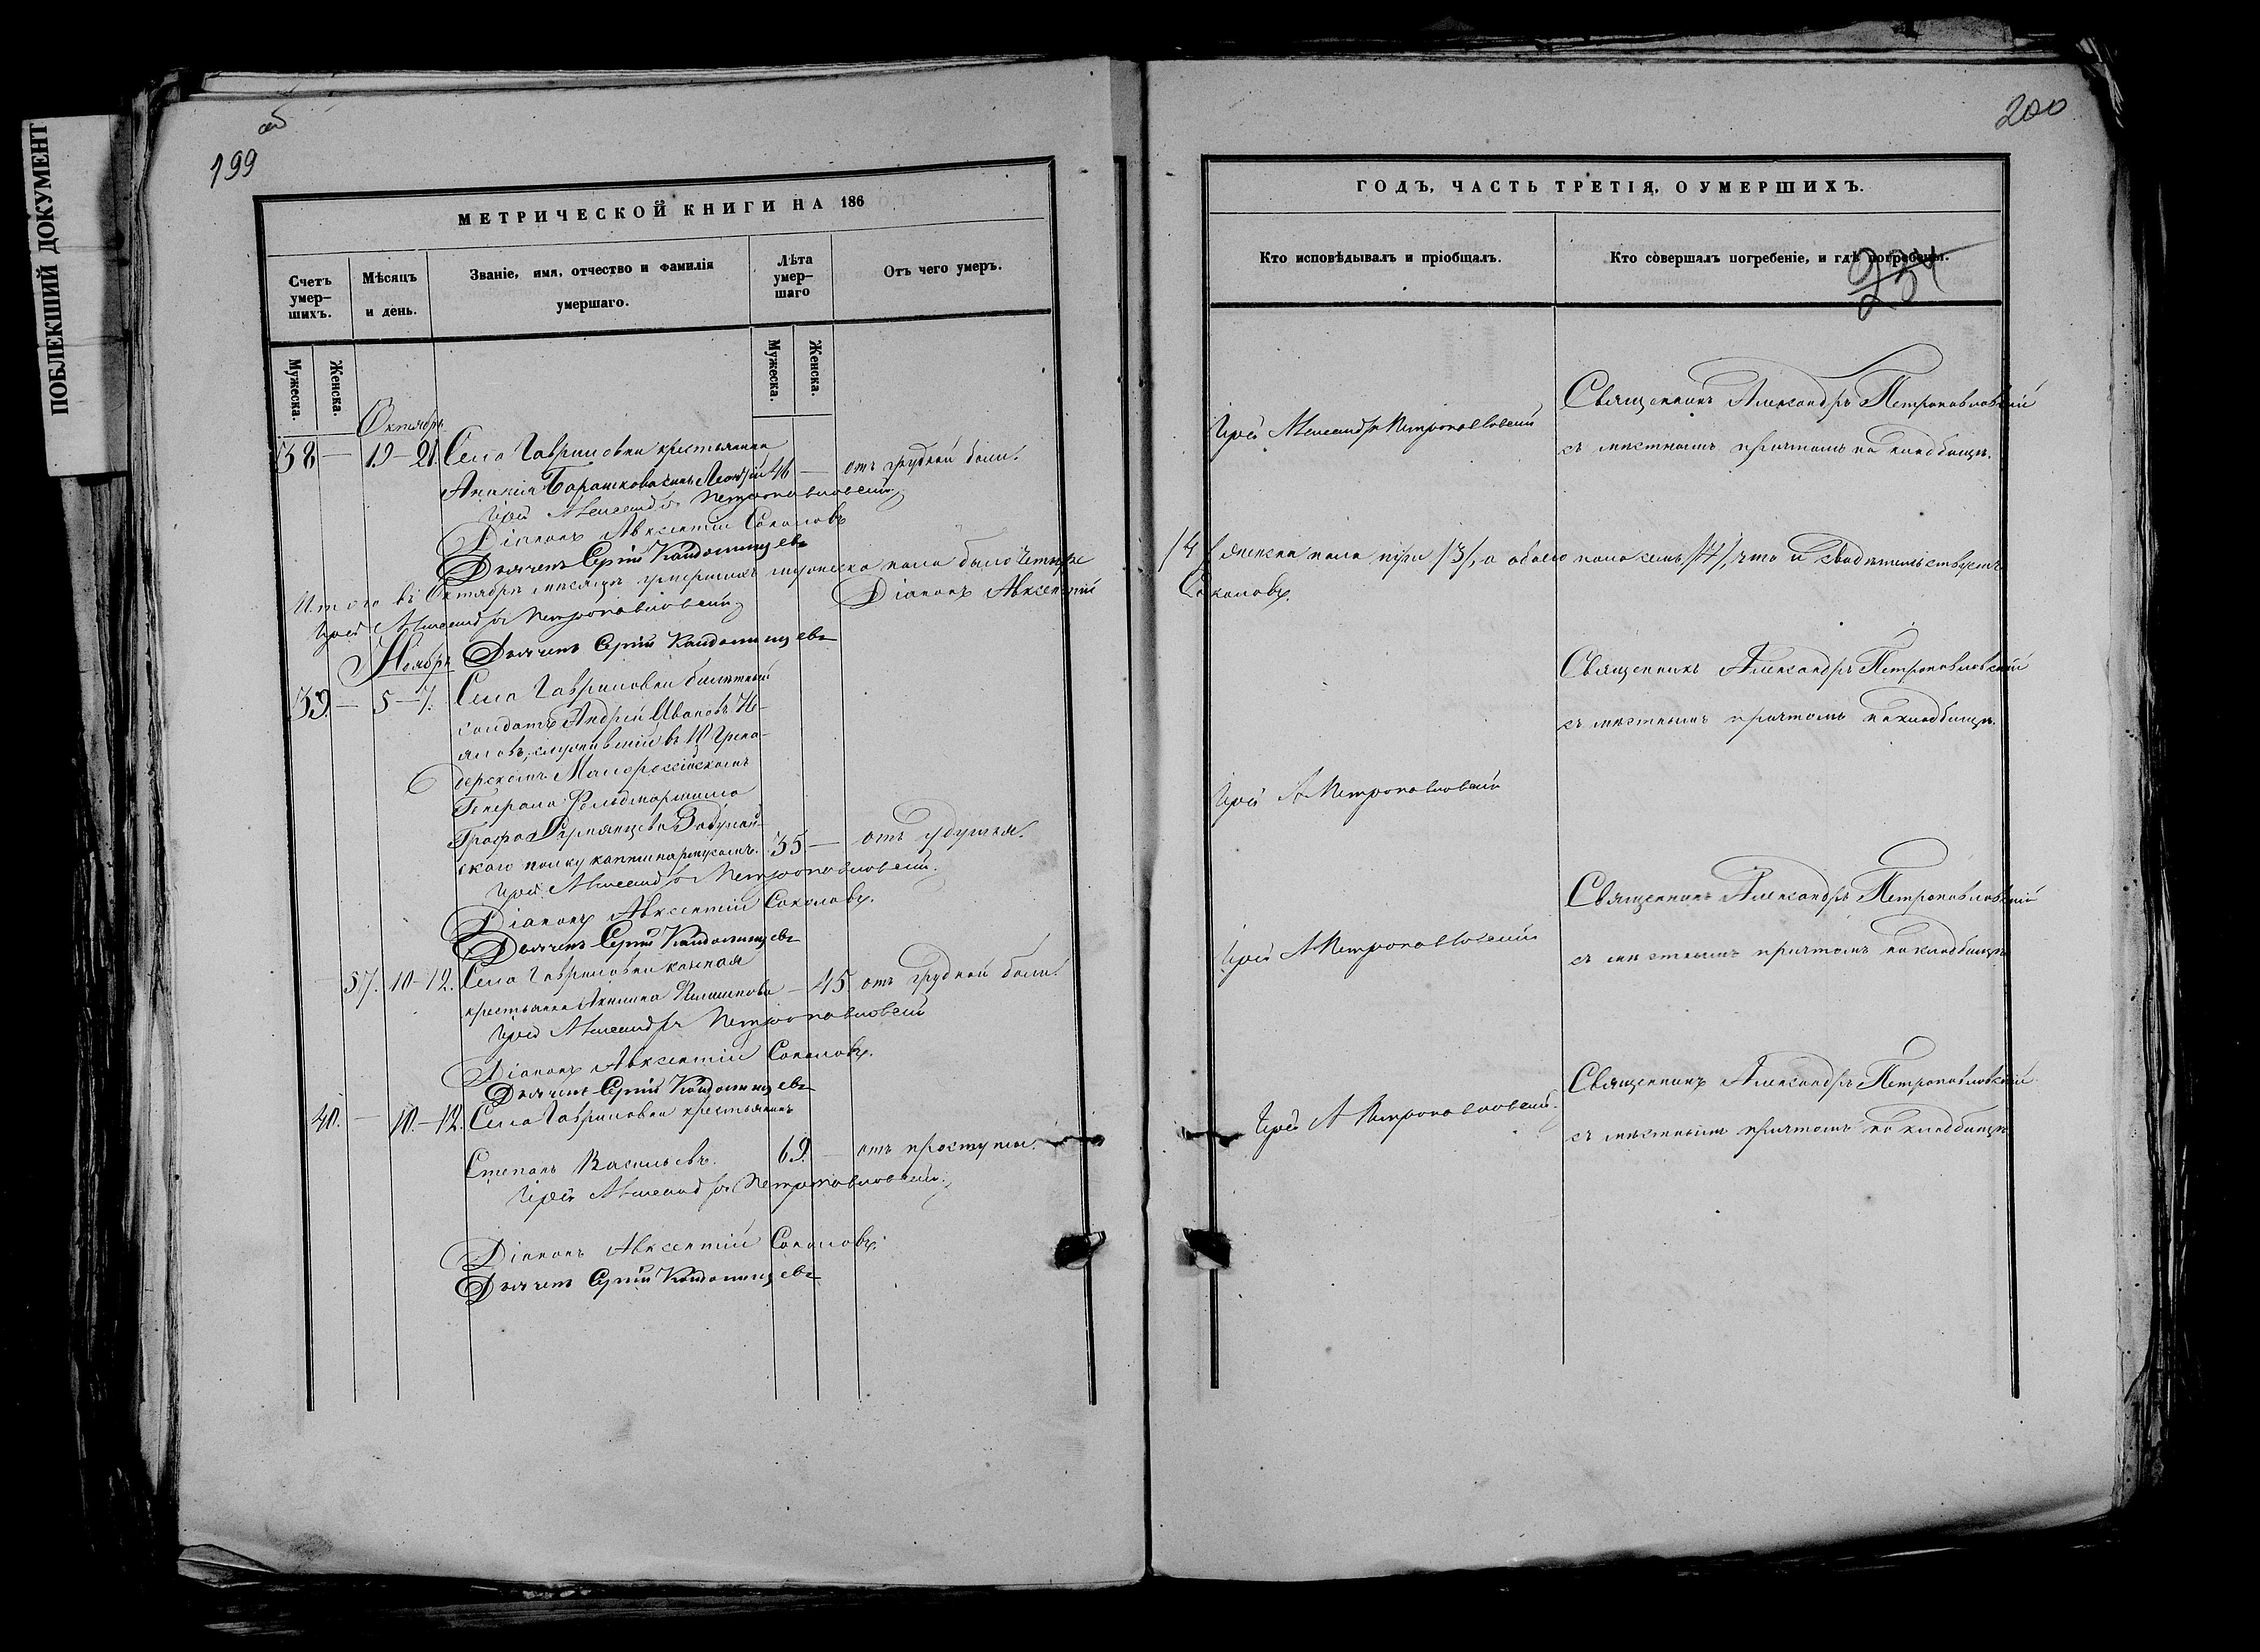 ПОБЛЕКШИЙ ДОКУМЕНТ
об
199
МЕТРИЧЕСКОЙ КНИГИ НА 186
Счетъ умер-шихъ.
Мѣсяцъ и день.
Званіе, имя, отчество и фамилія умершаго.
Лѣта умер-шаго
Отъ чего умеръ.
Мужеска.
Женска.
Мужеска.
Женска.
Октябрь.
38 — 19 — 21. Села Гавриловки крестьянина
Анания Барашкова сынъ 46 — отъ грудной боли.
Іерей Александръ Петропавловскій
Діаконъ Авксентій Соколовъ
Дьячекъ Сергій
Итого въ Октябрѣ мѣсяцѣ умершихъ мужеска пола было четыре
Іерей Александръ Петропавловскій Діаконъ Авксентій
Дьячекъ Сергій
Ноябрь
39. — 5 — 7. Села Гавриловки билетный
солдатъ Андрей Ивановъ
служившій въ 10 Грена-
дерскомъ Малороссійскомъ
Генерала Фельдмаршала
Графа Румянцева Задунай-
скаго полку 35 — отъ удушья.
Іерей Александръ Петропавловскій.
Діаконъ Авксентій Соколовъ.
Дьячекъ Сергій
37. 10 — 12. Села Гавриловки
крестьянка Акилина — 45 отъ грудной боли.
Іерей Александръ Петропавловскій
Діаконъ Авксентій Соколовъ.
Дьячекъ Сергій
40. — 10. — 12. Села Гавриловки крестьянинъ
Степанъ Васильевъ. 69. — отъ простуды.
Іерей Александръ Петропавловскій.
Діаконъ Авксентій Соколовъ.
Дьячекъ Сергій
200
ГОДЪ, ЧАСТЬ ТРЕТІЯ, О УМЕРШИХЪ.
Кто исповѣдывалъ и пріобщалъ.
Кто совершалъ погребеніе, и гдѣ погребены.
234
Іерей Александръ Петропавловскій
Священникъ Александръ Петропавловскій
съ мѣстнымъ причтомъ на кладбищѣ.
/4/ женска пола три /3/, а обоего пола семь /7/, что и свидѣтельствуемъ
Соколовъ.
Священникъ Александръ Петропавловскій
съ мѣстнымъ причтомъ на кладбищѣ.
Іерей А Петропавловскій
Священникъ Александръ Петропавловскій
Іерей А Петропавловскій
съ мѣстнымъ причтомъ на кладбищѣ
Священникъ Александръ Петропавловскій
Іерей А Петропавловскій.
съ мѣстнымъ причтомъ на кладбищѣ